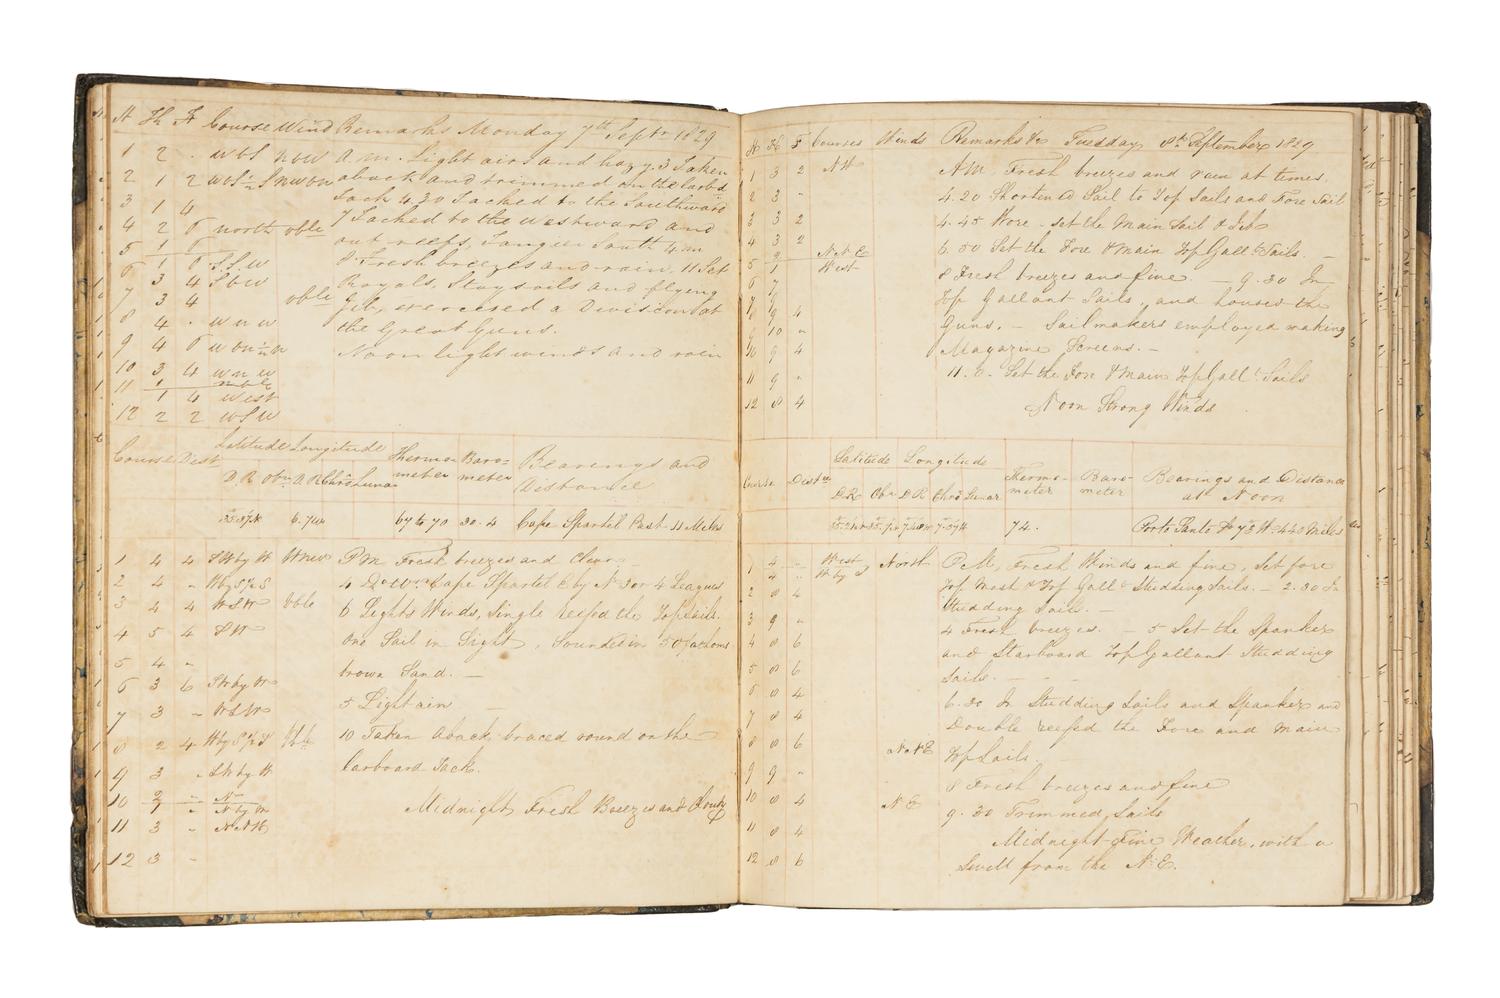 H K F Course Wind Remarks Monday 7th Septr 1829
1 2 . WbS NbW A.m. Light airs and hazy. 3 Taken
2 1 2 aback and trimmed on the larbd
3 1 4 Tack 4.30 Tacked to the Southward
4 2 6 north vble 7 Tacked to the Westward and
5 1 6 out reefs, Tangier South 4 m
6 1 6 S.S.W 8 Fresh breezes and rain. 11 Set
3 4 SbW Royals, Staysails and flying
7 3 4 vble Jib, exercised a Division at
8 4 . WNW the Great Guns.
9 4 6 Noon light winds and rain
10 3 4 WNW
11 1 vble
1 4 West
12 2 2 WSW
Course Dist Latitude Longitude Thermo- Baro- Bearings and
D.R Obn D.R Chro Lunar meter meter Distance
67 to 70 30.4 Cape Spartel East 11 Miles
1 4 4 SW by W P.M. Fresh breezes and Clear.
2 4 " W by S ½ S 4 Do Wr. Cape Spartel E by N 3 or 4 Leagues
3 4 4 WSW Vble 6 Lights Winds, Single reefed the Topsails.
4 5 4 SW One Sail in Sight, Sounded in 50 fathoms
5 4 " brown Sand. —
6 3 6 SW by W
7 3 " WSW 5 Light air —
8 2 4 W by S ½ S Vble 10 Taken Aback braced round on the
9 3 " SW by W larboard Tack.
10 2 " N
1 " N by W Midnight Fresh Breezes and Cloudy
11 3 " NNW
12 3 "
H K F Courses Winds Remarks &c Tuesday 8th September 1829
1 3 2 NW AM. Fresh breezes and rain at times.
2 3 " 4.20 Shortened Sail to Top Sails and Fore Sail
3 3 2 4.45 Wore. Set the Main Sail & Jib
4 3 2 6.50 Set the Fore & Main Top Gallt Sails. —
5 2 NNE
1 West 8 Fresh breezes and fine — 9.30 In
6 7 Top Gallant Sails, and housed the
7 9 Guns. — Sailmakers employed making
8 9 4 Magazine Screens. —
9 10 "
10 9 4
11 9 " 11. Set the Fore & Main Top Gallt Sails
12 8 4 Noon Strong Winds
Course Distce Latitude Longitude Thermo- Baro- Bearings and Distance
D.R Obn D.R Chro Lunar meter meter at Noon
74. Porto Santo 440 Miles
1 4 " West North P.M, Fresh Winds and fine, Set fore
4 " W by S Top Mast & Top Gallt Studding Sails. — 2.30 In
2 8 4 Studding Sails. —
3 9 " 4 Fresh breezes. — 5 Set the Spanker
4 8 6 and Starboard Top Gallant Studding
5 8 6 Sails. — - -
6 8 4 6.30 In Studding Sails and Spanker and
7 8 4 Double reefed the Fore and Main
8 8 6 NNE Top Sails. —
9 9 " 8 Fresh breezes and fine
10 8 4 NE 9.30 Trimmed Sails
11 8 4 Midnight Fine Weather, with a
12 8 6 Swell from the N.E.